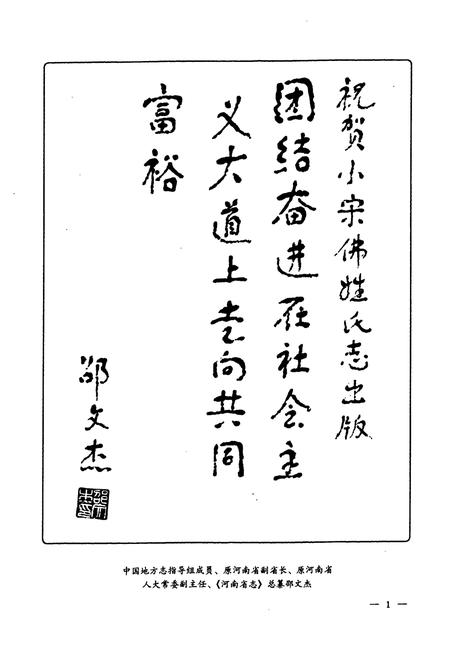 祝贺小宋佛姓氏志出版
团结奋进在社会主
义大道上走向共同
富裕
邵文杰
中国地方志指导组成员、原河南省副省长、原河南省
人大常委副主任、《河南省志》总纂邵文杰
— 1 —